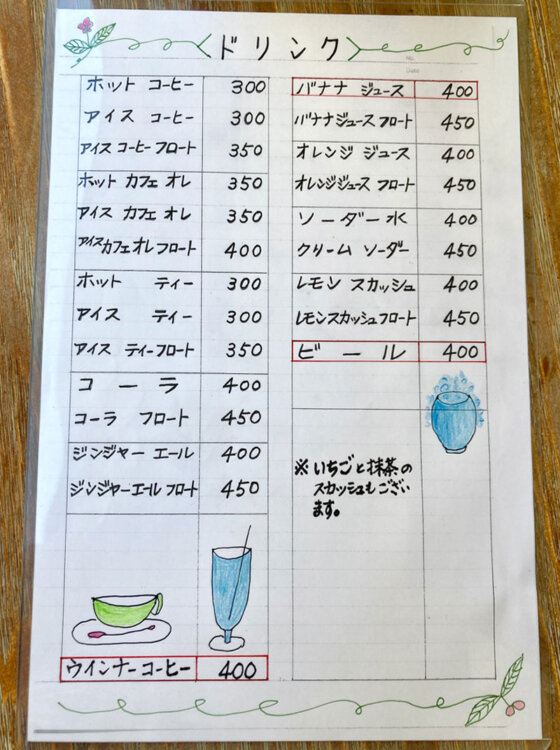 ドリンク
No.
Date
ホット コーヒー 300
アイス コーヒー 300
アイス コーヒーフロート 350
ホット カフェ オレ 350
アイス カフェ オレ 350
アイスカフェオレフロート 400
ホット ティー 300
アイス ティー 300
アイス ティーフロート 350
コーラ 400
コーラ フロート 450
ジンジャー エール 400
ジンジャーエール フロート 450
ウインナーコーヒー 400
バナナ ジュース 400
バナナジュースフロート 450
オレンジ ジュース 400
オレンジジュース フロート 450
ソーダー水 400
クリーム ソーダー 450
レモン スカッシュ 400
レモンスカッシュフロート 450
ビール 400
※いちごと抹茶の
スカッシュもござい
ます。